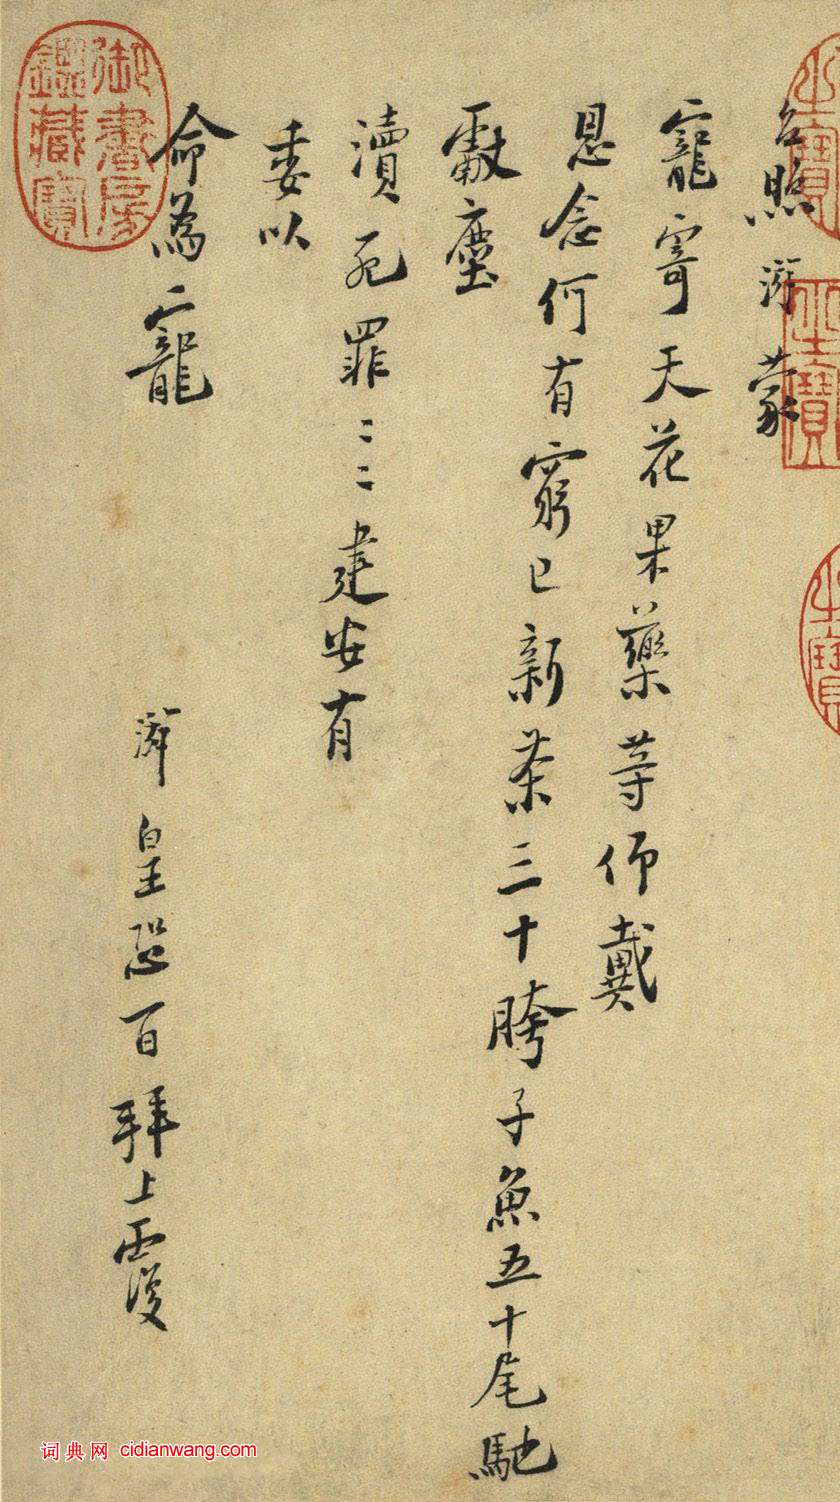 台照游蒙
寵寄天花果藥等仰戴
恩念何有窮已新茶三十胯子魚五十尾馳
獻塵
瀆死罪〻〻建安有
委以
命為寵
游皇恐百拜上覆
御書房鑑藏寶
之寶
之寶
词典网 cidianwang.com